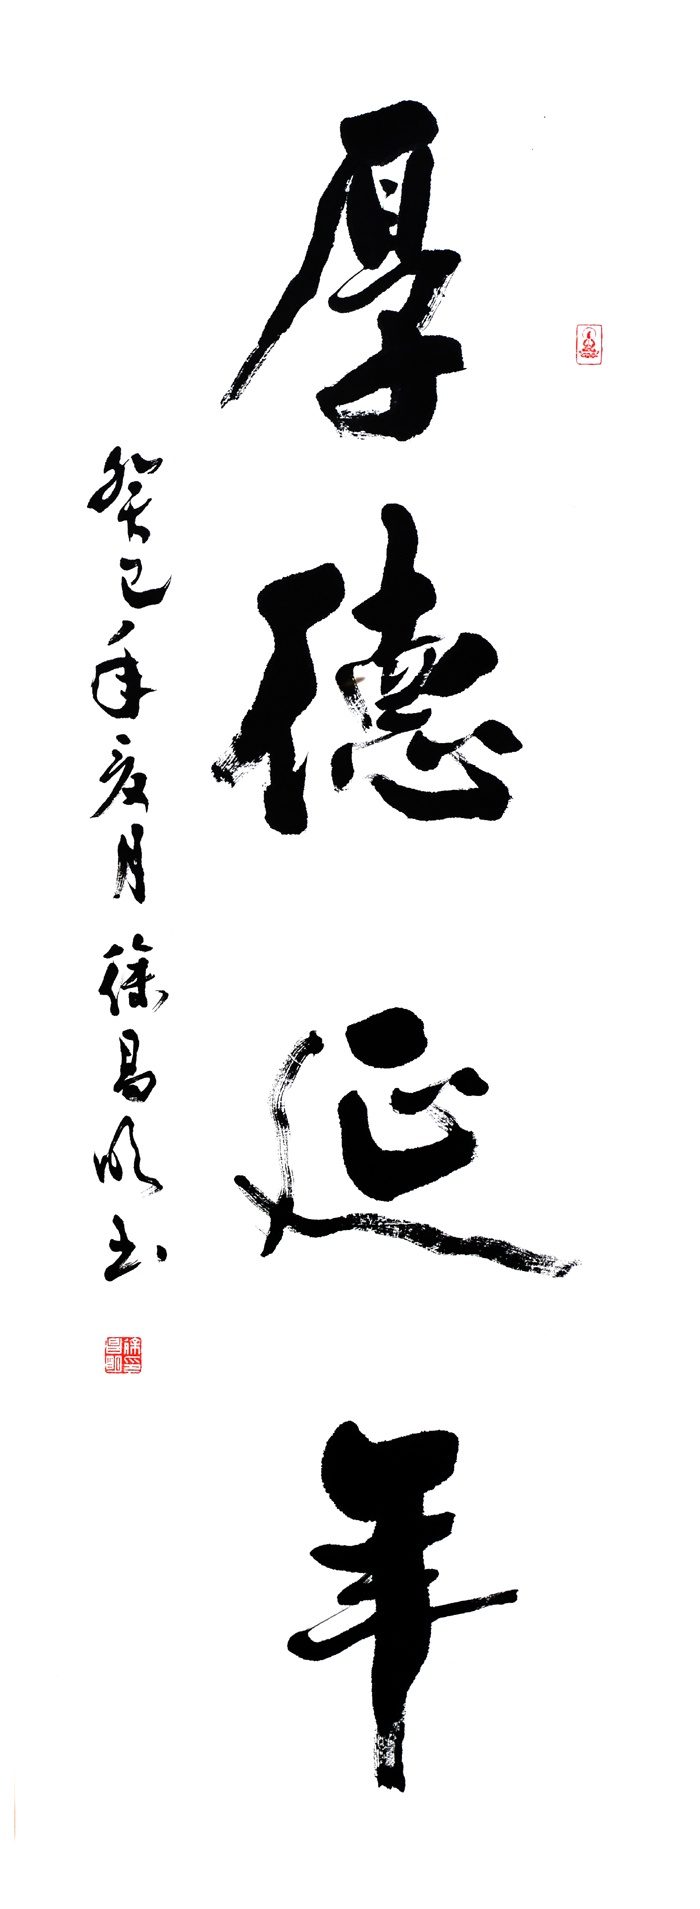 厚德延年
癸巳年夏月徐昌明书
徐昌明印